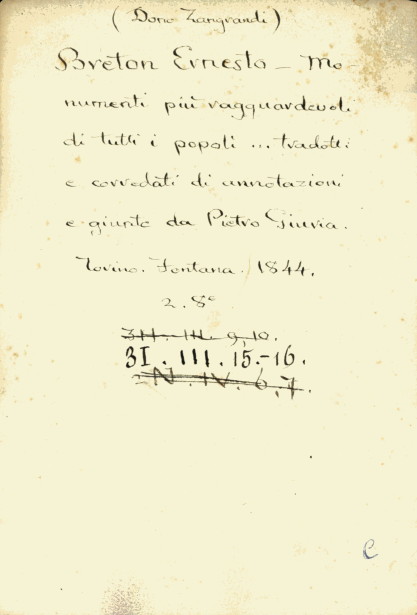 (Dono Zangrandi)
Breton Ernesto – Mo-
numenti più ragguardevoli
di tutti i popoli ... tradotti
e corredati di annotazioni
e giunte da Pietro Giuria.
Torino. Fontana. 1844.
2. 8°
3H. III. 9, 10.
31. III. 15.–16.
N. IV. 6, 7.
C